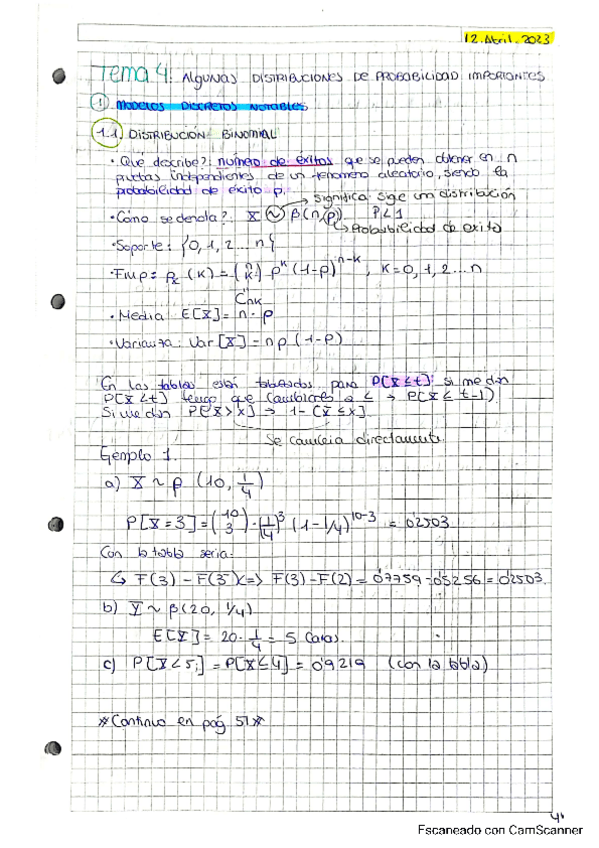 12. Abril. 2023
Tema 4: ALGUNAS DISTRIBUCIONES DE PROBABILIDAD IMPORTANTES
1 MODELOS DISCRETOS NOTABLES
1.1. DISTRIBUCIÓN BINOMIAL
· Qué describe?: número de éxitos que se pueden obtener en n
pruebas independientes de un fenomeno aleatorio, siendo la
probabilidad de éxito p.
→ significa: sigue una distribución
· Cómo se denota?: X ~ β(n,p) P<1
↳ Probabilidad de exito
· Soporte: {0, 1, 2... n}
· Fmp: Px (k) = (n k) p^k (1-p)^n-k, k=0, 1, 2...n
Cn,k
· Media: E[X] = n · p
· Varianza: Var [X] = np (1-p)
En las tablas están tabulados para P[X≤t] si me dan
P[X<t] tengo que cambiarlo a ≤ → P[X≤ t-1]
Si me dan P[X>x] → 1-[X≤x]
Se cambia directamente
Ejemplo 1.
a) X ~ β (10, 1/4)
P[X=3] = (10 3) · (1/4)^3 (1-1/4)^10-3 = 0'2503
Con la tabla sería:
↳ F(3) - F(3^-) <=> F(3) - F(2) = 0'7759 - 0'5256 = 0'2503.
b) X ~ β(20, 1/4)
E[X] = 20 · 1/4 = 5
c) P[X<5] = P[X≤4] = 0'9219 (con la tabla)
*Continuo en pág 51*
Escaneado con CamScanner